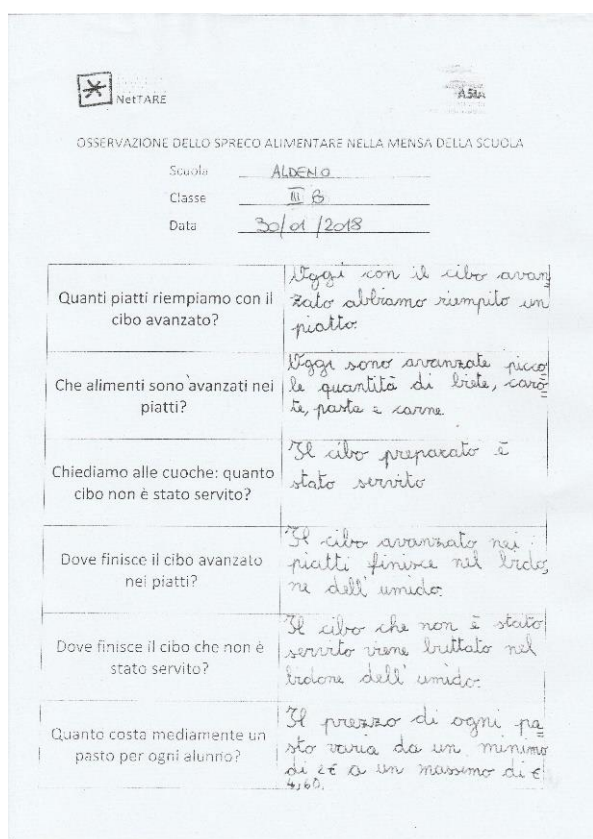 NetTARE
ASIA
OSSERVAZIONE DELLO SPRECO ALIMENTARE NELLA MENSA DELLA SCUOLA
Scuola ALDENO
Classe III B
Data 30/01/2018
Quanti piatti riempiamo con il
cibo avanzato?
Oggi con il cibo avan
zato abbiamo riempito un
piatto.
Che alimenti sono avanzati nei
piatti?
Oggi sono avanzate picco
le quantità di biete, caro
te, pasta e carne.
Chiediamo alle cuoche: quanto
cibo non è stato servito?
Il cibo preparato è
stato servito
Dove finisce il cibo avanzato
nei piatti?
Il cibo avanzato nei
piatti finisce nel bido
ne dell'umido.
Dove finisce il cibo che non è
stato servito?
Il cibo che non è stato
servito viene buttato nel
bidone dell'umido.
Quanto costa mediamente un
pasto per ogni alunno?
Il prezzo di ogni pa
sto varia da un minimo
di 2€ a un massimo di €
4,60.